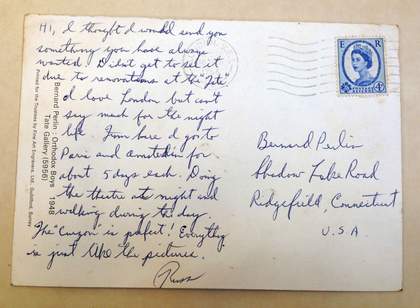 Hi, I thought I would send you
something you have always
wanted. Didn't get to see it
due to renovations at the "Tate"
I love London but can't
say much for the night
life. From here I go to
Paris and Amsterdam for
about 5 days each. Doing
the theatre at night and
walking during the day.
The "Curzon" is perfect! Everything
is just like the pictures.
Russ
Bernard Perlin : Orthodox Boys 1948
Tate Gallery (5956)
Printed for the Trustees by Fine Art Engravers, Ltd., Guildford, Surrey
E R
4D
Bernard Perlin
Shadow Lake Road
Ridgefield, Connecticut
U.S.A